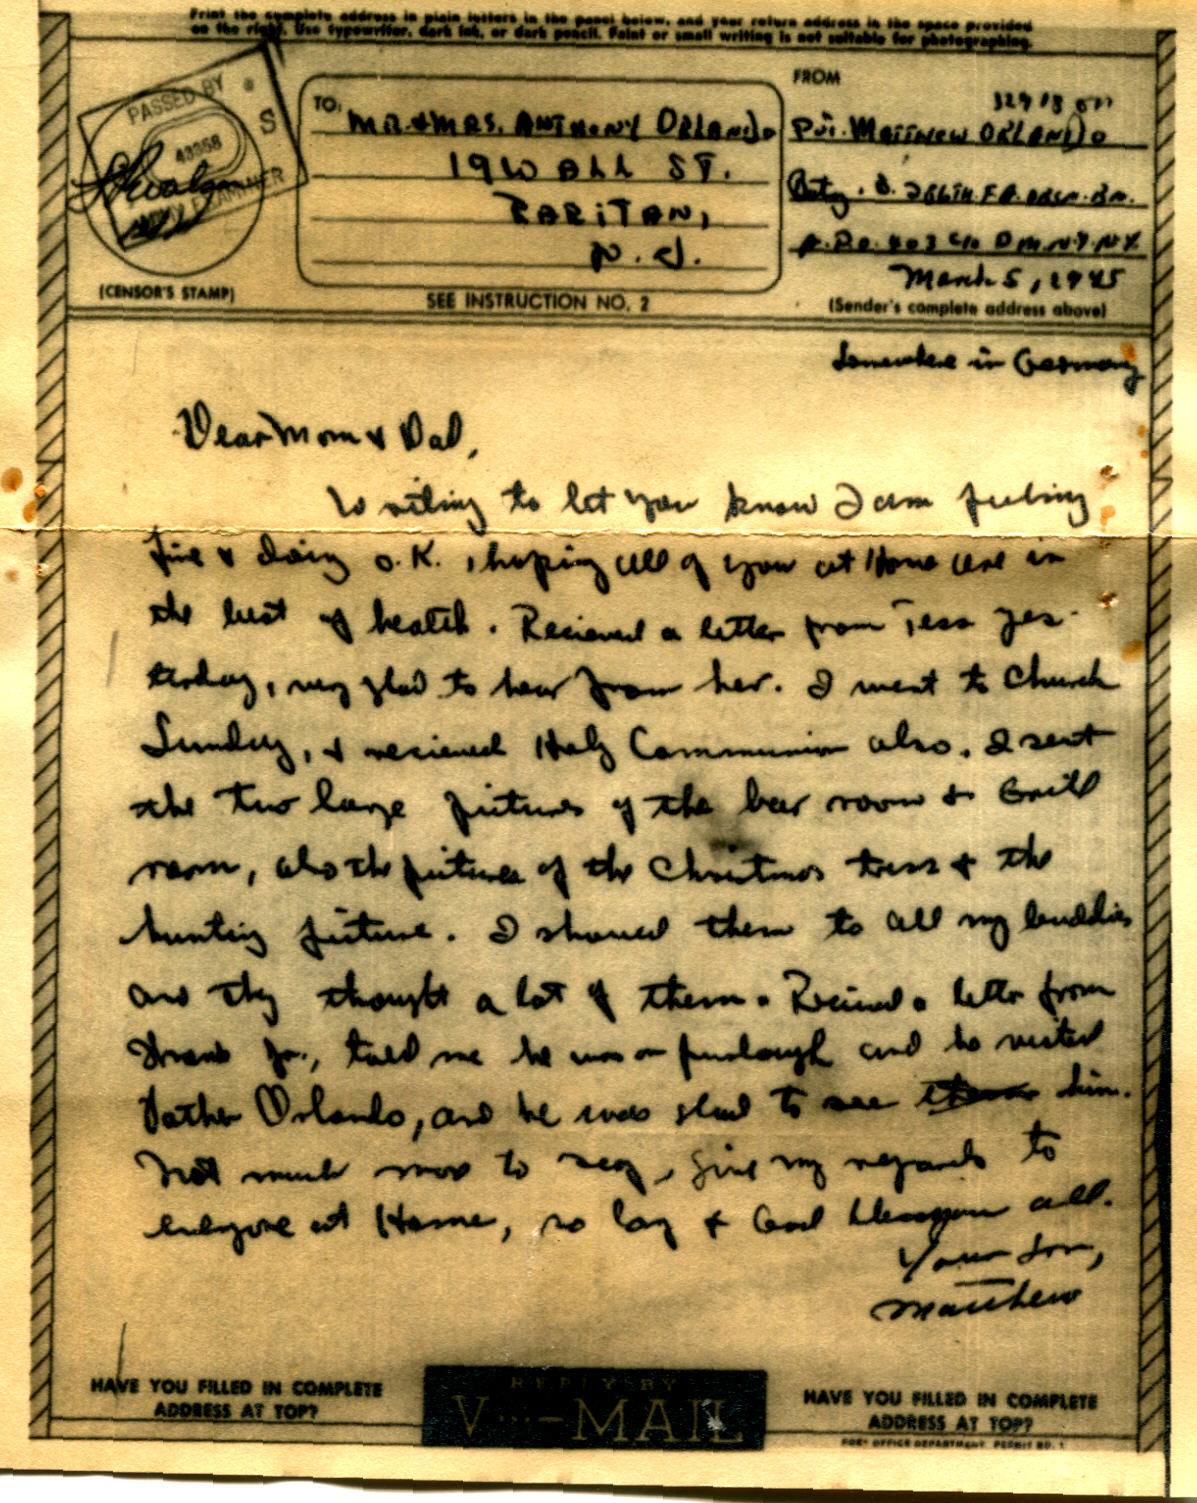 Print the complete address in plain letters in the panel below, and your return address in the space provided
on the right. Use typewriter, dark ink, or dark pencil. Faint or small writing is not suitable for photographing.
PASSED BY
S
43958
ARMY EXAMINER
(CENSOR'S STAMP)
TO:
MR. & MRS. ANTHONY ORLANDO
19 WALL ST.
RARITAN,
N.J.
SEE INSTRUCTION NO. 2
FROM
Pvt. MATTHEW ORLANDO
Btry. B. 266TH. F.A. OBSN. BN.
A.P.O. 403 c/o P.M. N.Y. N.Y.
March 5, 1945
(Sender's complete address above)
Somewhere in Germany
Dear Mom & Dad,
Writing to let you know I am feeling
fine & doing O.K., hoping all of you at Home are in
the best of health. Recieved a letter from Tess yes-
terday, very glad to hear from her. I went to Church
Sunday, & recieved Holy Communion also. I sent
the two large pictures of the bar room & Grill
room, also the pictures of the Christmas tress & the
hunting picture. I showed them to all my buddies
and they thought a lot of them. Recieved a letter from
Frank Jr., told me he was on furlough and he visited
Father Orlando, and he was glad to see him.
Not much more to say, give my regards to
everyone at Home, so long & God bless you all.
Your Son,
Matthew
HAVE YOU FILLED IN COMPLETE
ADDRESS AT TOP?
REPLY BY
V···—MAIL
HAVE YOU FILLED IN COMPLETE
ADDRESS AT TOP?
POST OFFICE DEPARTMENT PERMIT NO. 1